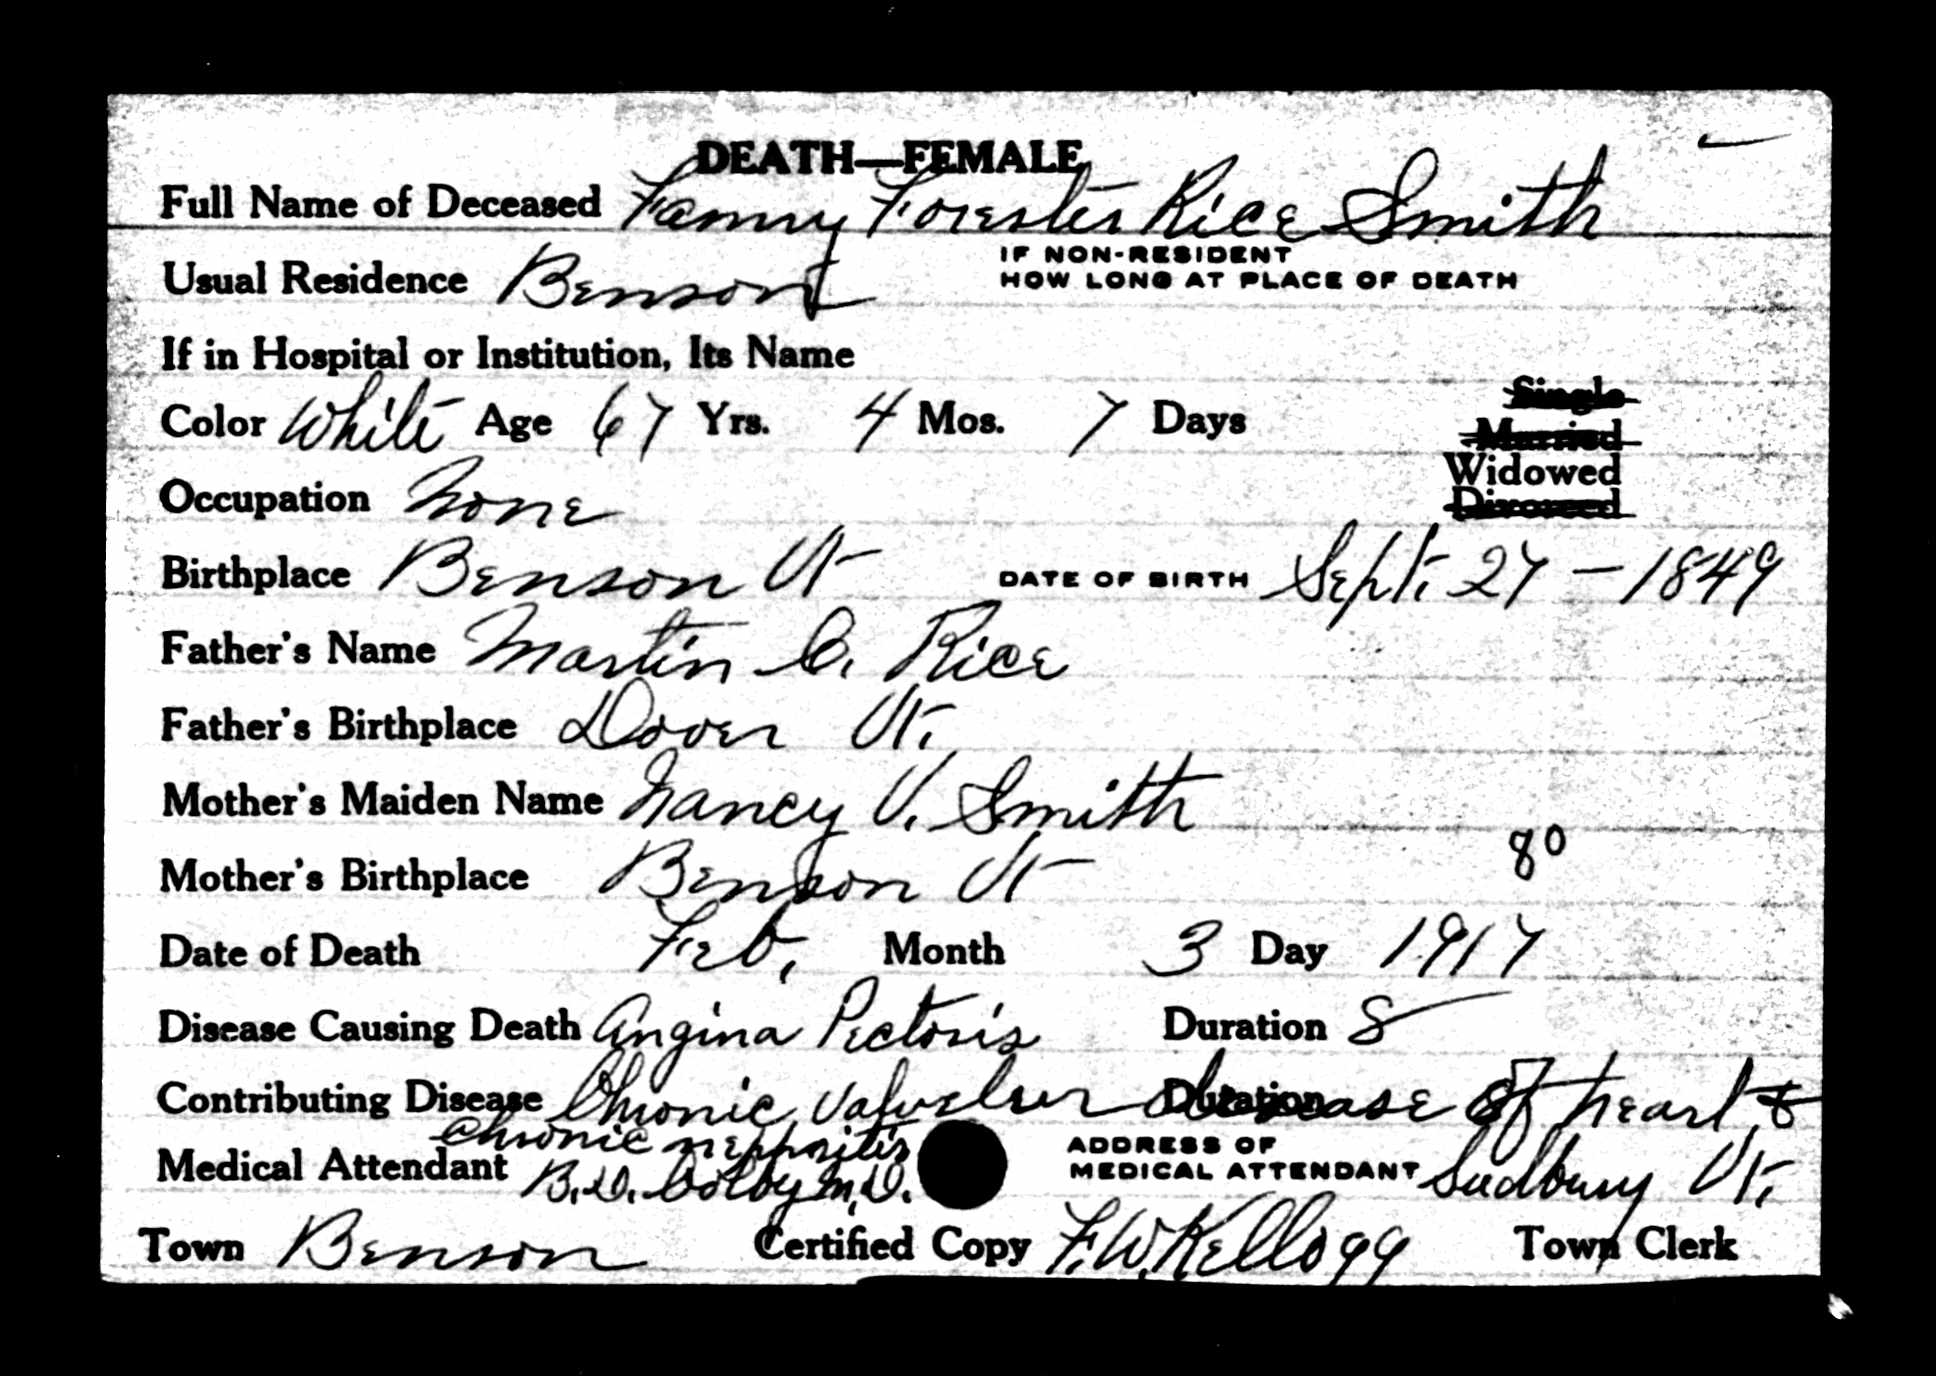 DEATH—FEMALE
Full Name of Deceased Fanny Forester Rice Smith
Usual Residence Benson IF NON-RESIDENT
HOW LONG AT PLACE OF DEATH
If in Hospital or Institution, Its Name
Color White Age 67 Yrs. 4 Mos. 7 Days
Single
Married
Widowed
Divorced
Occupation None
Birthplace Benson Vt DATE OF BIRTH Sept. 27 - 1849
Father's Name Martin C. Rice
Father's Birthplace Dover Vt.
Mother's Maiden Name Nancy V. Smith
Mother's Birthplace Benson Vt
80
Date of Death Feb. Month 3 Day 1917
Disease Causing Death Angina Pectoris Duration 8
Contributing Disease Chronic Valvular Duration disease of heart &
Chronic nephritis
Medical Attendant B.D. Colby M.D. ADDRESS OF
MEDICAL ATTENDANT Sudbury Vt.
Town Benson Certified Copy F.W. Kellogg Town Clerk